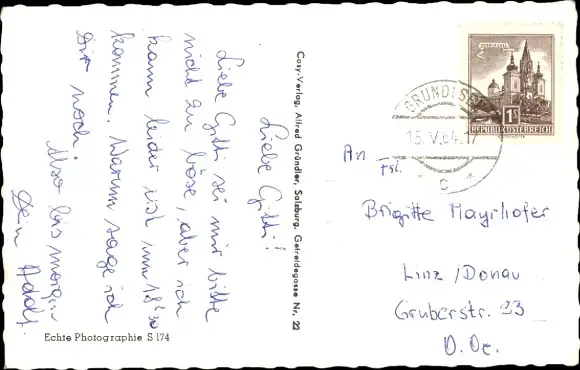 Liebe Gitti!
Liebe Gitti sei mir bitte
nicht zu böse, aber ich
kann leider erst um 18h30
kommen. Warum sage ich
Dir noch! Also bis morgen
Dein Adolf.
Cosy-Verlag, Alfred Gründler, Salzburg, Getreidegasse Nr. 22
Echte Photographie S 174
MARIAZELL
1S
REPUBLIK ÖSTERREICH
GRUNDLSEE
15.V.64.17
c
An
Frl.
Brigitte Mayrhofer
Linz /Donau
Gruberstr. 33
O.Oe.